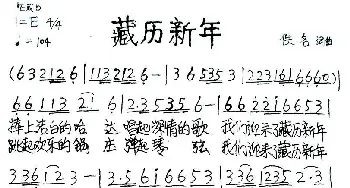 1=E 4/4
藏历新年
♩=104
佚名 词曲
(6 3 2 1 2 6 | 1 1 3 2 1 2 6 - | 3 6 5 3 5 3 | 2 2 3 1 6 1 6 6 6 0)
6 6 1 1 3 2 1 6 | 2 . 3 5 3 5 6 - | 6 6 2 2 3 1 6 6 5 3 |
捧上洁白的哈 达 唱起深情的歌 我们迎来了藏历新年
跳起欢乐的锅 庄 弹起琴 弦 我们迎来了藏历新年
3 3 6 1 2 3 - | 3 . 5 6 1 6 6 5 3 | 3 3 6 1 2 3 5 2 . 3 |